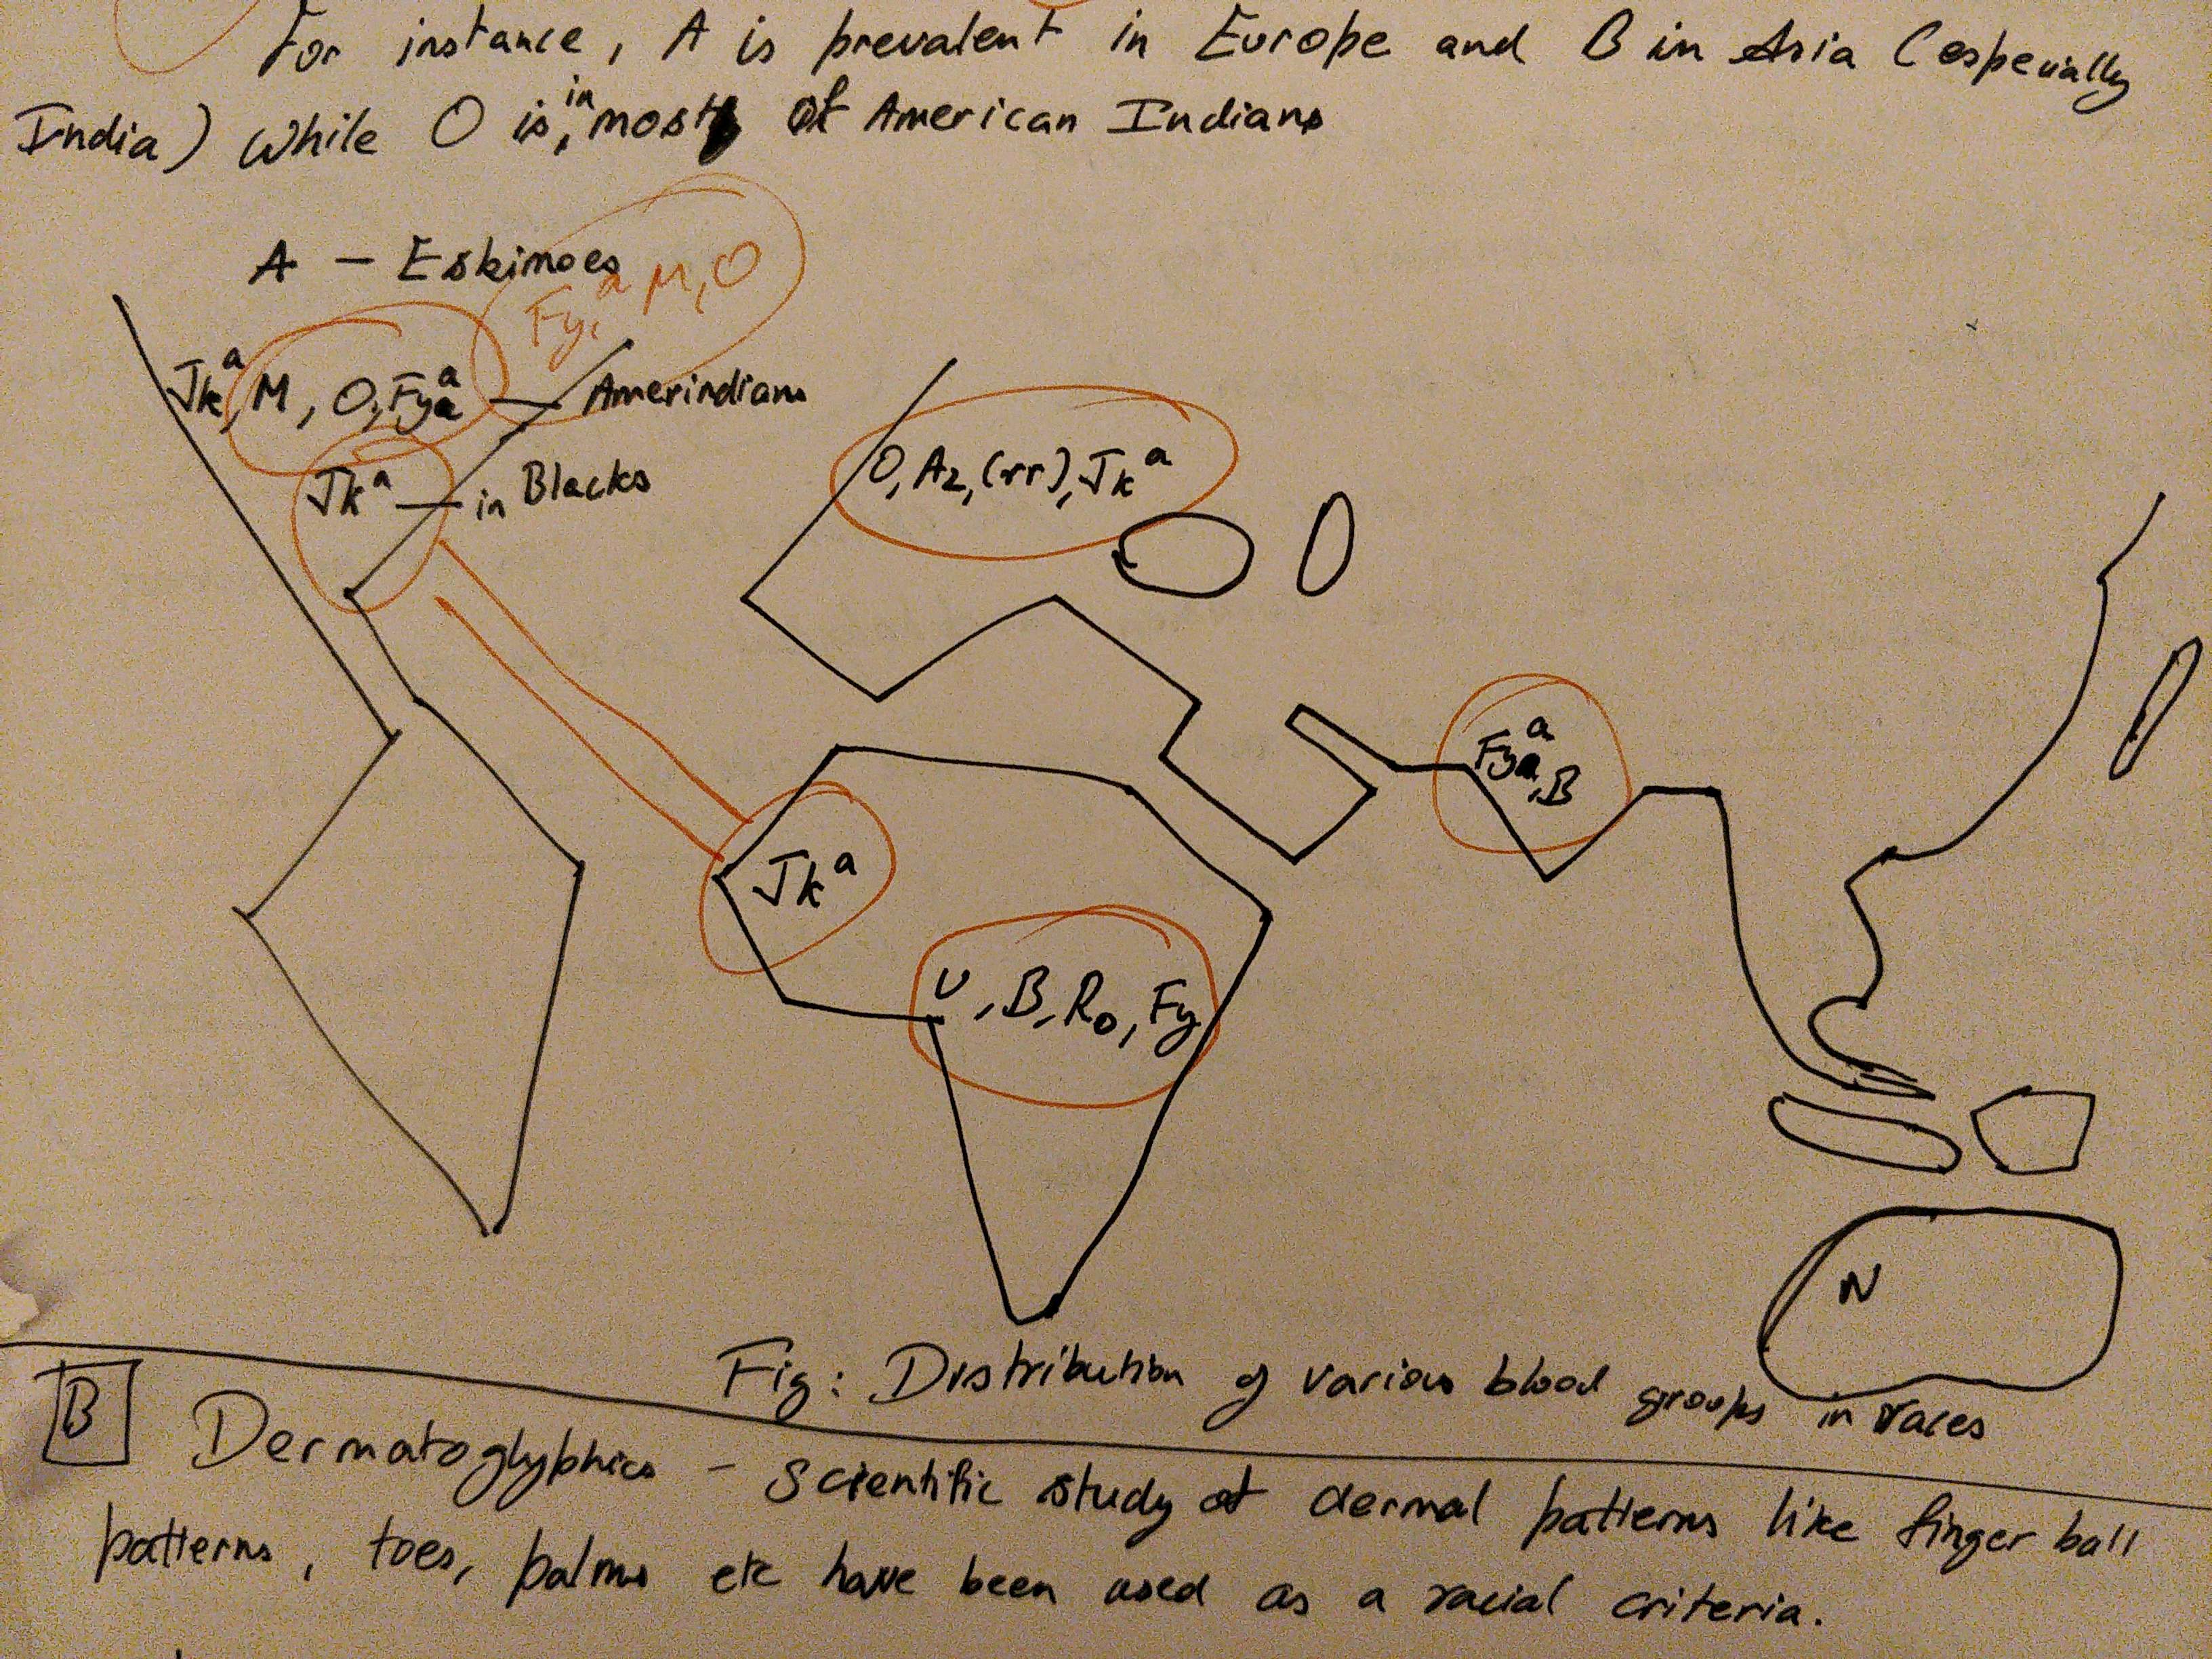 For instance, A is prevalent in Europe and B in Asia (especially
India) while O is in most of American Indians
A - Eskimoes
Fy a, M, O
Jk a, M, O, Fy a — Amerindians
Jk a — in Blacks
O, A2, (rr), Jk a
Fy a, B
Jk a
U, B, Ro, Fy
N
Fig: Distribution of various blood groups in races
B Dermatoglyphics - scientific study of dermal patterns like finger ball
patterns, toes, palms etc have been used as a racial criteria.